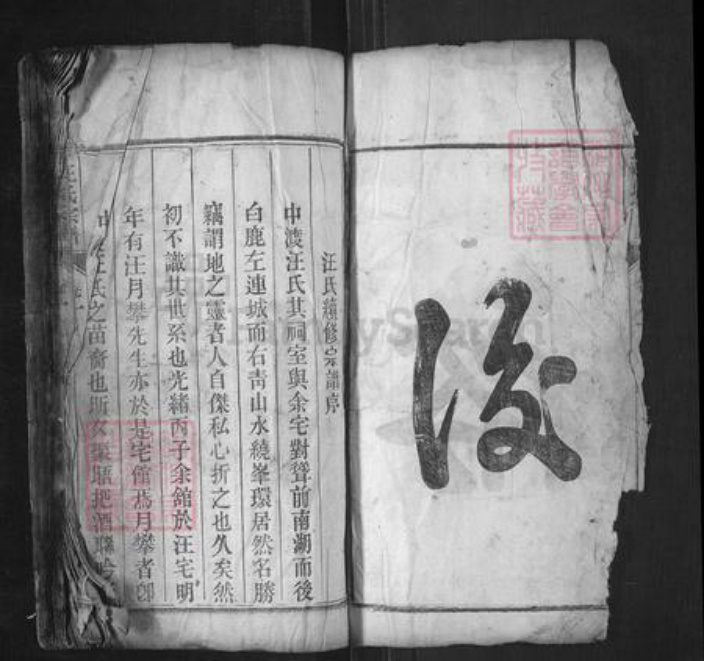 後
汪氏續修宗譜序
中渡汪氏其祠室與余宅對聳前南湖而後
白鹿左連城而右青山水繞峯環居然名勝
竊謂地之靈者人自傑私心折之也久矣然
初不識其世系也光緒丙子余館於汪宅明
年有汪月攀先生亦於是宅館焉月攀者卽
中渡汪氏之苗裔也所久聚晤把酒
汪氏宗譜